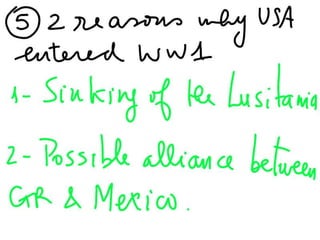 ⑤ 2 reasons why USA
entered WW1
1- Sinking of the Lusitania
2- Possible alliance between
GR & Mexico.